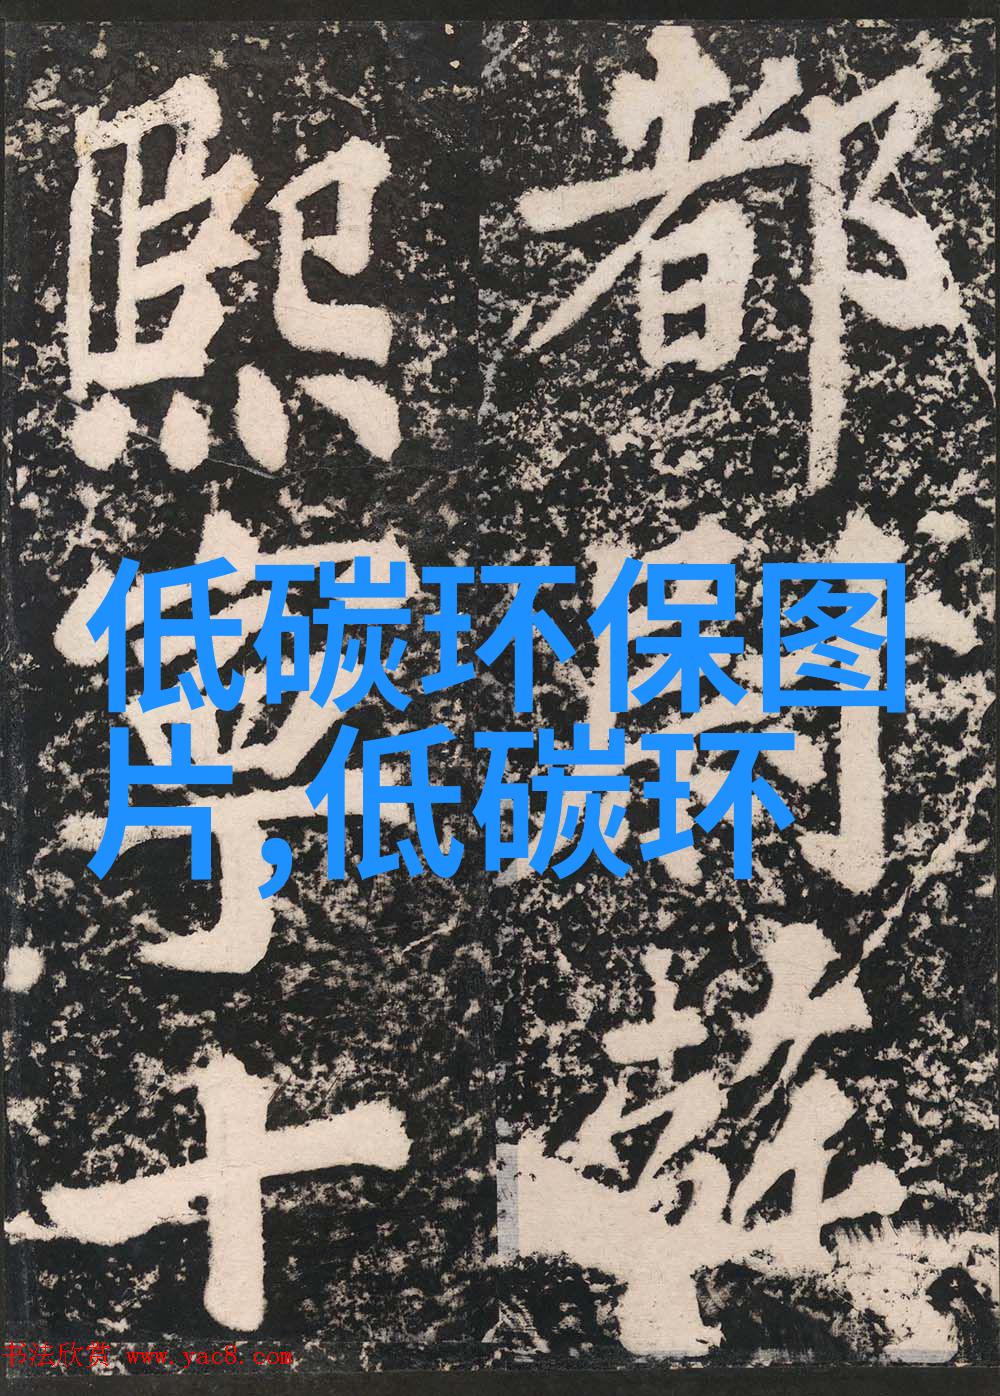 都
熙寧十
低碳环保图
片,低碳环
书法欣赏 www.yac8.com